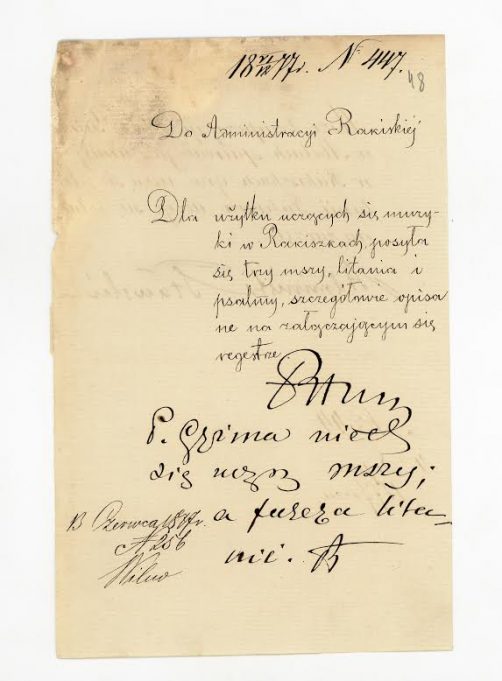 18 VI/12 77r. N 447.
48
Do Administracyi Rakiskiej
Dla użytku uczących się muzy-
ki w Rakiszkach, posyła
się trzy mszy, litania i
psalmy, szczegółowie opisa
ne na załączającym się
regestrze
P. Grzima niech
się uczą mszy;
13 Czerwca 1877r. a fuszza lita-
N 256
nii.
Wilno